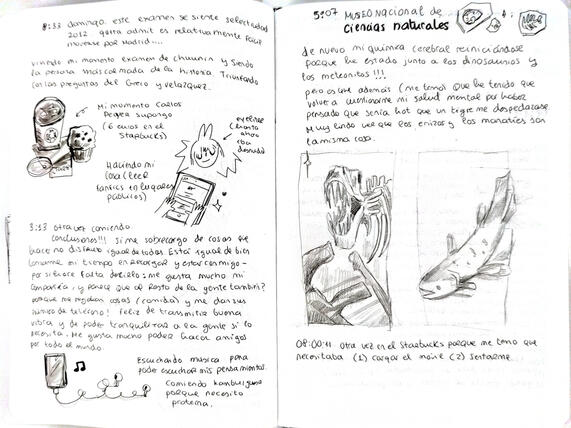 8:33 domingo. este examen se siente selectividad
2022 quita admit es relativamente facil
moverse por Madrid....
viviendo mi momento examen de chuunin y siendo
la persona más calmada de la historia. Triunfando
con las preguntas del Greco y Velázquez.
Mi momento Carlos
Pegea supongo
(6 euros en el
Starbucks)
Haciendo mi
cosa (leer
fanfics en lugares
públicos)
3:33 otra vez comiendo
Conclusiones!!! si me sobrecargo de cosas que
hacer no disfruto igual de todas. Está igual de bien
tomarme mi tiempo en recargar y estar conmigo-
por si hace falta decirlo: me gusta mucho mi
compañía, y parece que al resto de la gente también?
porque me regalan cosas (comida) y me dan sus
número de teléfono! feliz de transmitir buena
vibra y de poder tranquilizar a la gente si lo
necesita. Me gusta mucho poder hacer amigos
por todo el mundo.
Escuchando música para
poder escuchar mis pensamientos.
Comiendo hamburguesa
porque necesito
proteína.
5:07 MUSEO Nacional de
ciencias naturales
de nuevo mi química cerebral reiniciándose
porque he estado junto a los dinosaurios y
los meteoritos!!!
pero es que además (me temo) que he tenido que
volver a cuestionarme mi salud mental por haber
pensado que sería hot que un tigre me despedazase.
Muy lindo ver que los erizos y los manatíes son
la misma cosa.
08:00:11 otra vez en el Starbucks porque me temo que
necesitaba (1) cargar el móvil (2) sentarme.